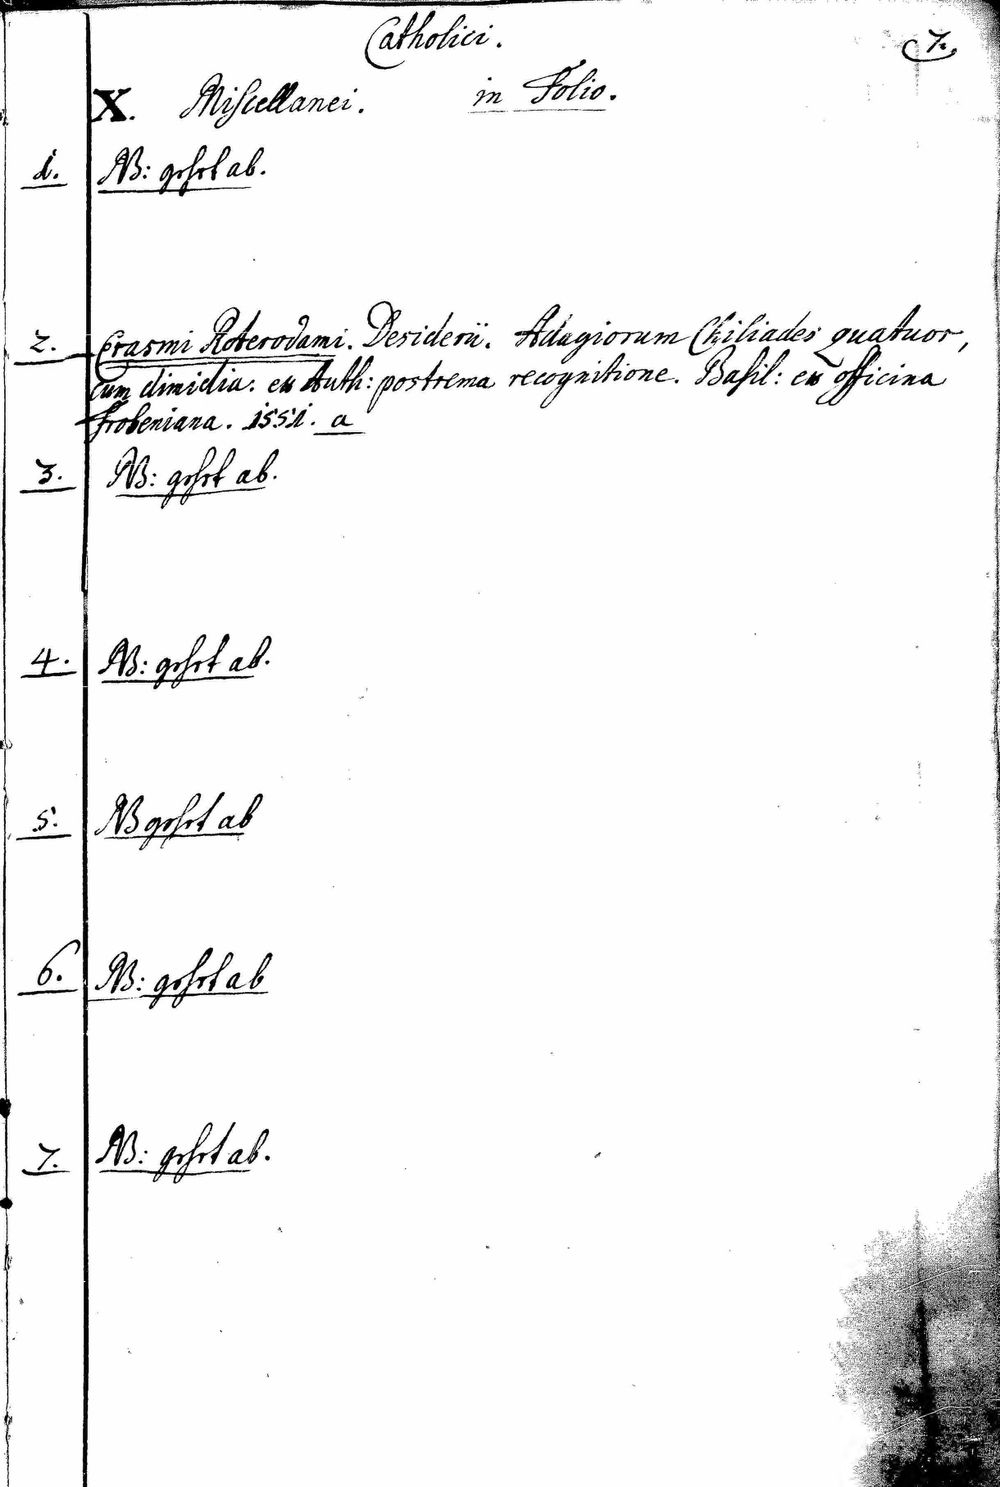 Catholici.
7.
X. Miscellanei. in Folio.
1. NB: gehet ab.
2. Erasmi Roterodami. Desiderii. Adagiorum Chiliades quatuor,
cum dimidia. ex Auth: postrema recognitione. Basil: ex officina
Frobeniana. 1551. a
3. NB: gehet ab.
4. NB: gehet ab.
5. NB gehet ab
6. NB: gehet ab
7. NB: gehet ab.